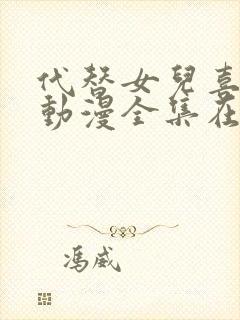 代替女兒喜
動漫全集在
馮威